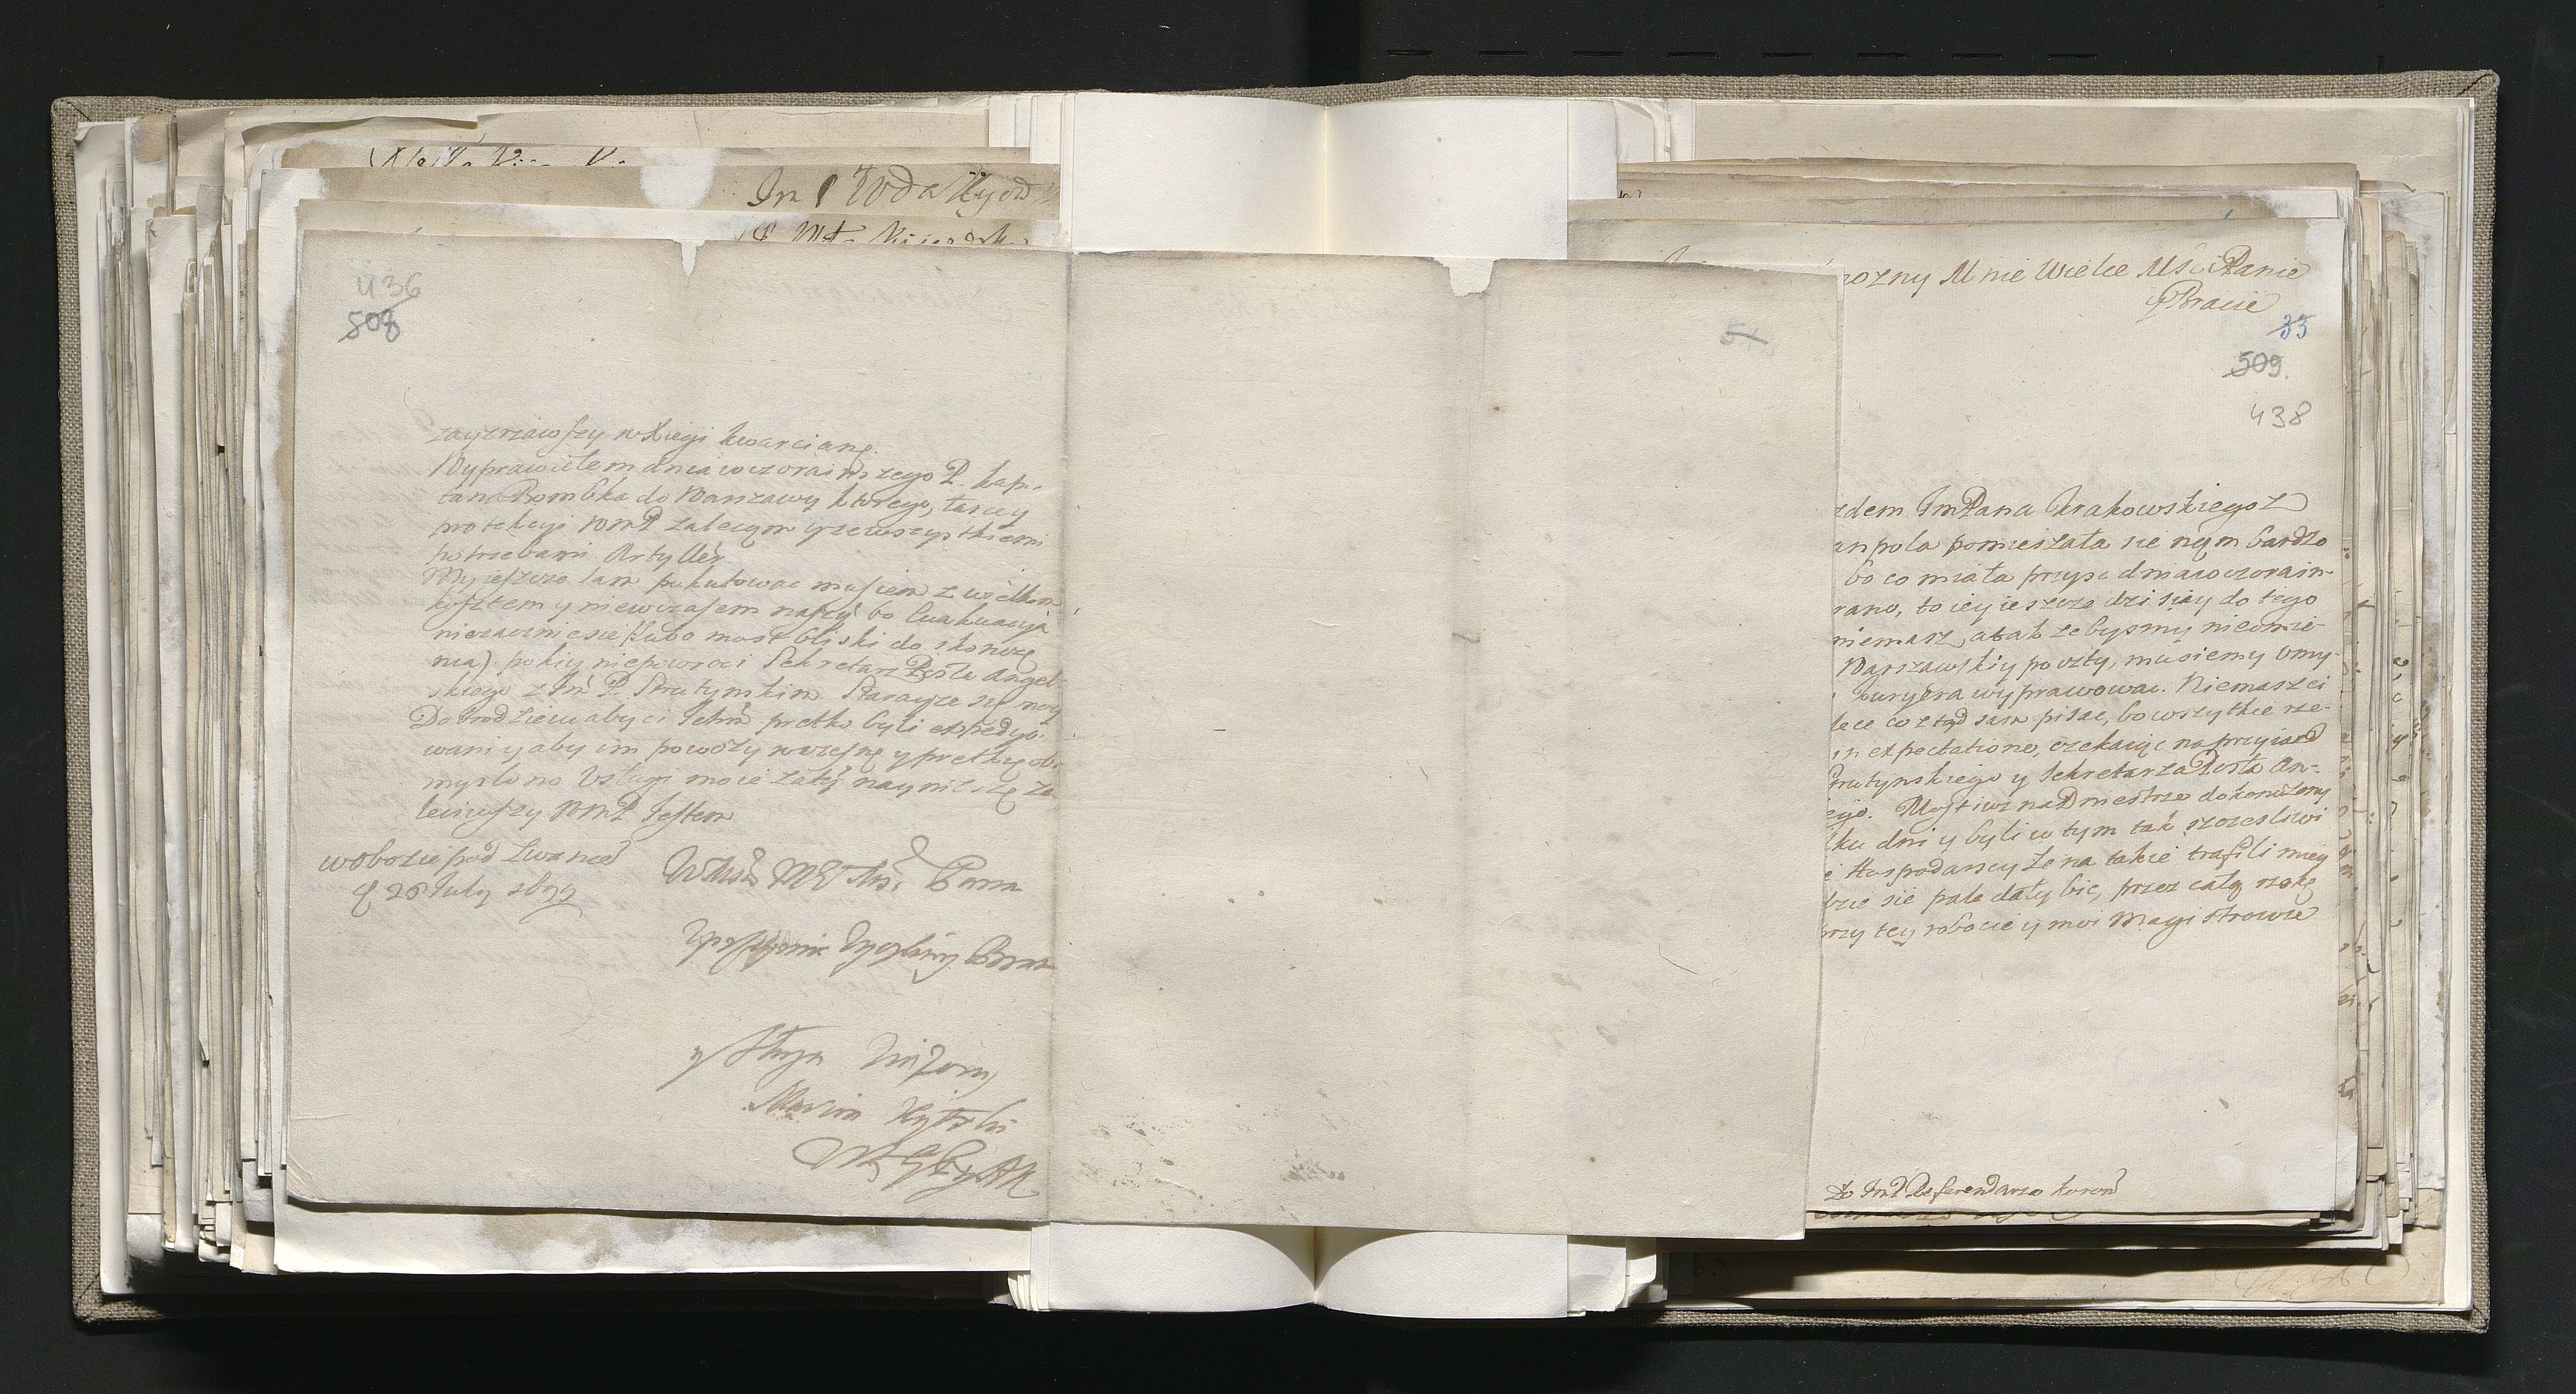 Im P Woda Kyow
436
508
zayzrzawszy w Xiegi kwarciane.
Wyprawiłem dnia wczorainszego P. kap-
tana Bombka do Warszawy ktorego, łascey
protekcyi WMP zalecam y ze wszystkiemi
potrzebami Artyllery.
My ieszcze tam pokutowac musiem z wielkim
kosztem y niewczasem naszym bo Ewakuacyja
niezacznie sie (lubo most bliski do skoncze
nia) pokiy niepowroci Sekretarz Posła Angel-
skiego z Im P. Smutynskim Starayze się moy
Dobrodzieiu aby ci Ichm pretko byli expedyo-
wani y aby im powozy wczesne y pretkie ob-
myslono Usługi moie zatym nayniższe za
leciwszy WMP Jestem
w obozie pod Zwancem
d 26 July 1699
WMM Mści Pana
Uprzeymie zyczliwy Brat
y sługa unizony
Marcin Kątski
51
nozny Mnie Wielce Mści Panie
y Bracie
33
509.
438
zdem ImPana Krakowskiego z
anpola pomieszała sie nam bardzo
bo co miała przysc dnia wczorain-
rano, to iey ieszcze dzisiay do tego
niemasz, a tak zebysmy nieomie-
Warszawskiy poczty, musiemy Umy-
kuryera wyprawowac. Niemasz ci
lece co ztąd sam pisac, bo wszytkie rze-
in expectatione, czekaiąc na przyiazd
Smutynskiego y Sekretarza Posła An-
ego. Most iuz na Dniestrze dokonczony
lku dni y byli w tym tak szczesliwi
Hospodarscy ze na takie trafili miey
dzie sie pale dały bic, przez całą rzekę
przy tey robocie y moi Magistrowie
Do ImP Referendarza koron